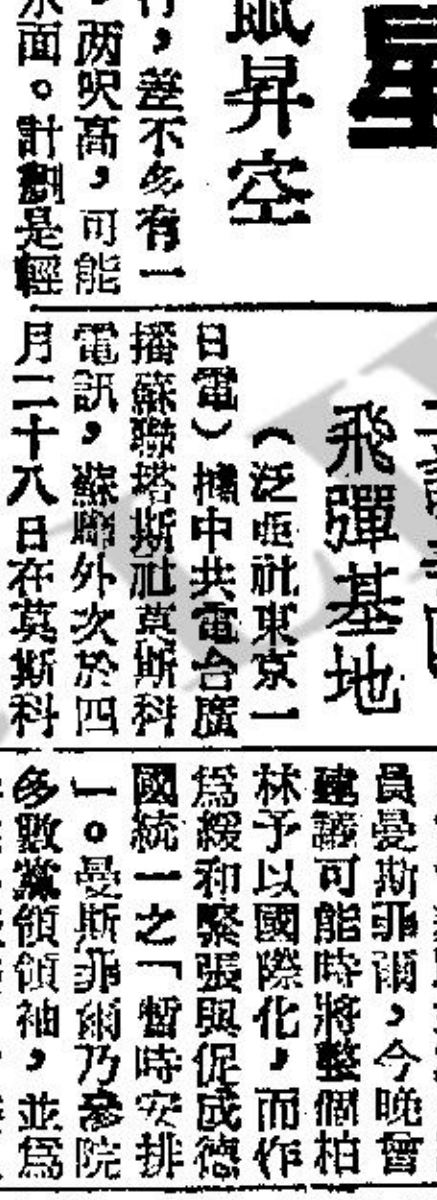 星
鼠昇空
行，差不多有一
，两呎高，可能
水面。計劃是輕
飛彈基地
（泛亞社東京一
日電）據中共電台廣
播蘇聯塔斯社莫斯科
電訊，蘇聯外次於四
月二十八日在莫斯科
員曼斯菲爾，今晚曾
建議可能時將整個柏
林予以國際化，而作
爲緩和緊張與促成德
國統一之「暫時安排
」。曼斯菲爾乃參院
多數黨領領袖，並爲